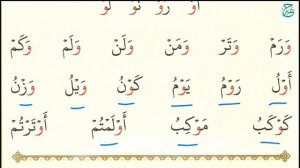 وَرَمْ وَتَرْ وَمَنْ وَلَنْ وَلَمْ وَكَمْ
أَوْلُ رَوْمُ يَوْمُ كَوْنُ وَيْلُ وَزْنُ
كَوْكَبُ مَوْكِبُ أَوْلَمْتُمْ أَوْتَرْتُمْ